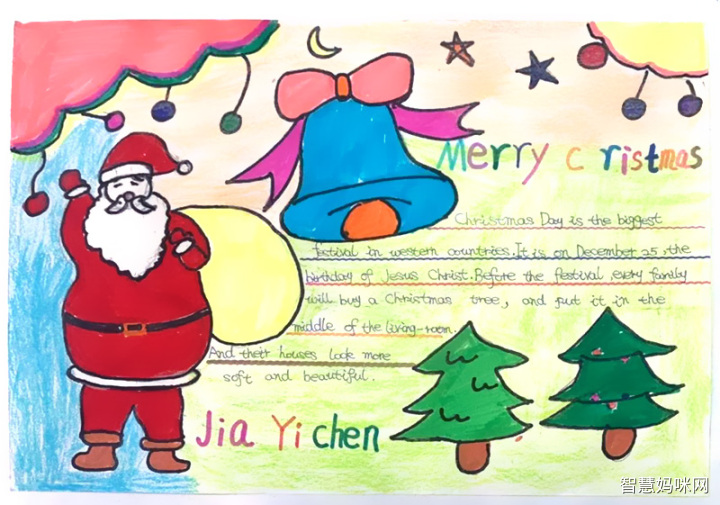 Merry c ristmas
Christmas Day is the biggest
festival in western countries.It is on December 25, the
birthday of Jesus Christ.Before the festival, every family
will buy a Christmas tree, and put it in the
middle of the living-room.
And their houses look more
soft and beautiful.
Jia Yi chen
智慧妈咪网